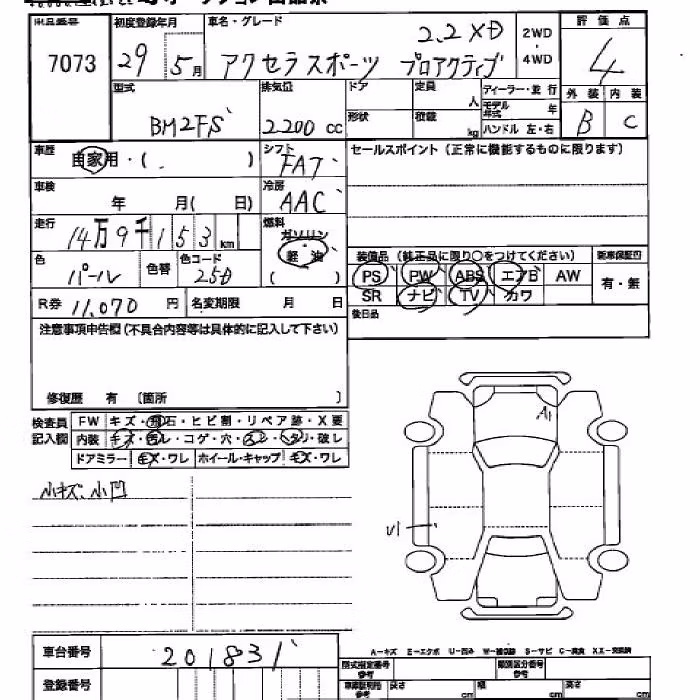 出品番号 初度登録年月 車名・グレード 評価点
7073 29 5月 アクセラスポーツ プロアクティブ 2.2XD 2WD・4WD 4
型式 排気量 ドア 定員 人 ディーラー・並行 外装 内装
BM2FS 2200cc 形状 積載 kg モデル年式 年 ハンドル 左・右 B C
車歴 自家用・( ) シフト FAT セールスポイント(正常に機能するものに限ります)
車検 年 月( 日) 冷房 AAC
走行 14万9千153km 燃料 ガソリン 軽油 ( )
色 パール 色替 色コード 25D 装備品(純正品に限り○をつけてください) 新車保証書
PS PW ABS エアB AW 有・無
R券 11,070円 名変期限 月 日 SR ナビ TV カワ
後日品
注意事項申告欄(不具合内容等は具体的に記入して下さい)
修復歴 有 〔箇所 〕
検査員記入欄 FW キズ・飛石・ヒビ割・リペア跡・X要
内装 キズ・ヨゴレ・コゲ・穴・スレ・ヘタリ・破レ
ドアミラー キズ・ワレ ホイール・キャップ キズ・ワレ
小キズ、小凹
A1
U1
A-キズ E-エクボ U-凹み W-補修跡 S-サビ C-腐食 XX-交換済
車台番号 201831
登録番号
型式指定番号 参考 類別区分番号 参考
長さ cm 幅 cm 高さ cm